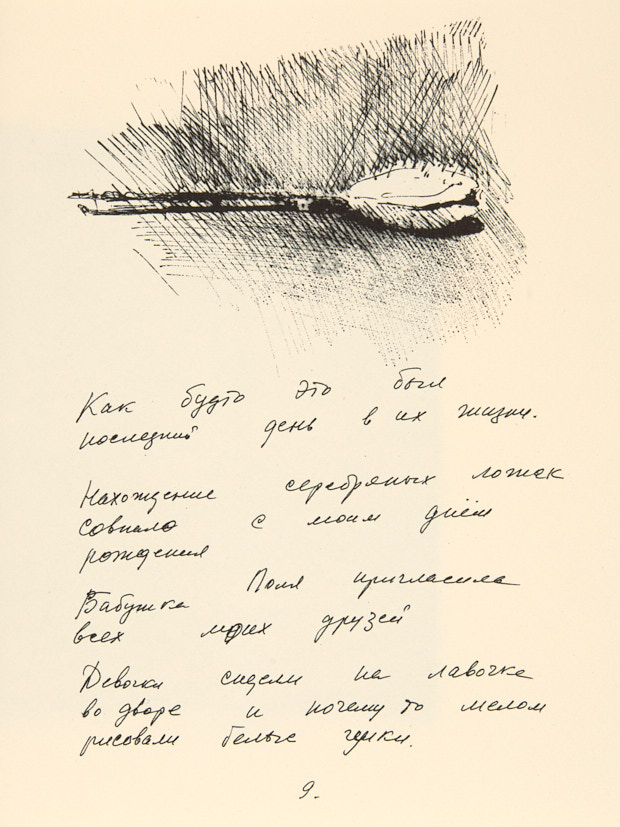 Как будто это был
последний день в их жизни.
Нахождение серебряных ложек
совпало с моим днём
рождения
Бабушка Поля пригласила
всех моих друзей
Девочки сидели на лавочке
во дворе и почему то мелом
рисовали белые
9.